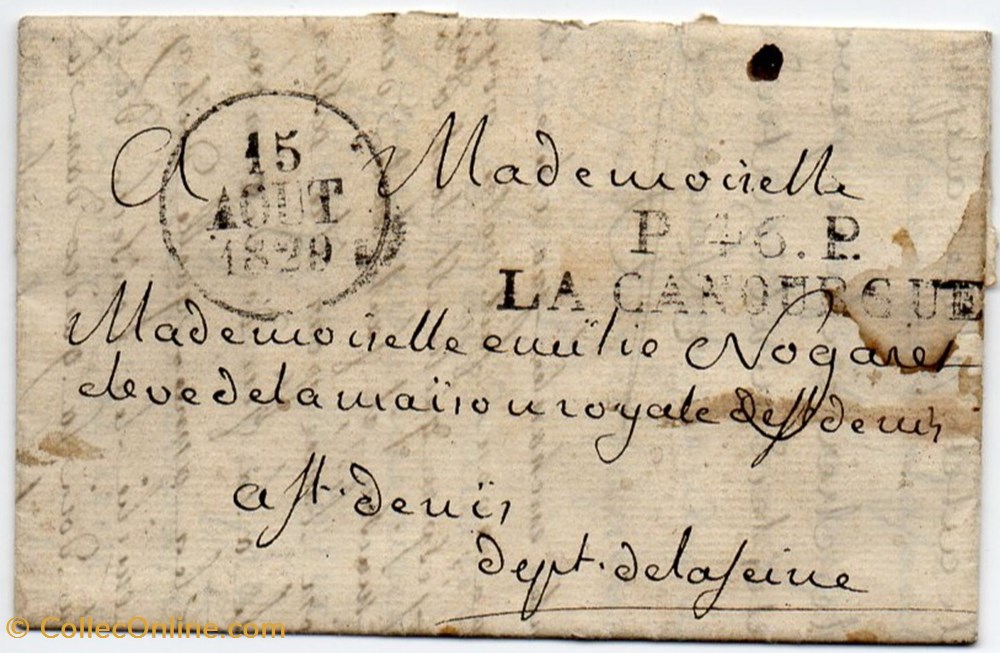 A Mademoiselle
15
AOUT
1829
P. 46. P.
LA CANOURGUE
Mademoiselle emïlie Nogaret
eleve de la maïson royale de st denis
a st. denïs
dept. de la seine
© CollecOnline.com